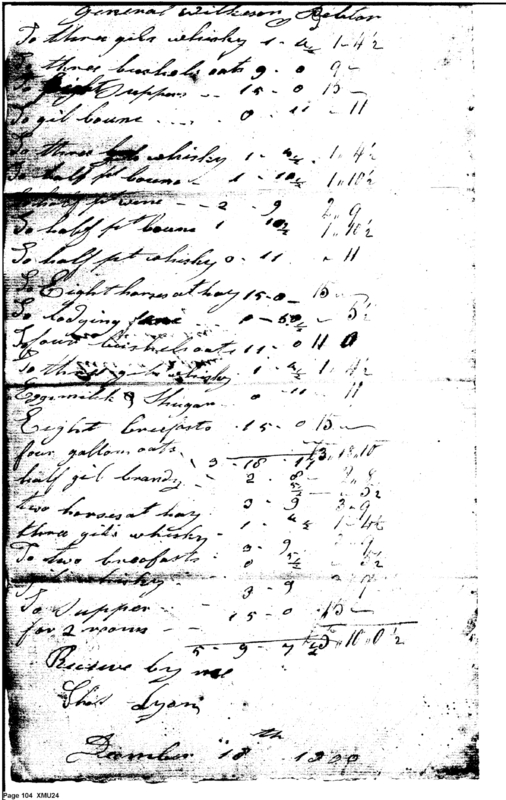 General Wilkeson Debtor
To three gils whisky 1 - 4½ 1 - 4½
To three bushels oats 9 - 0 9 -
To Eight Suppers -- 15 - 0 15 -
To gil boune - - - - 0 - 11 - 11
To three gils whisky 1 - 4½ 1 „ 4½
To half pt boune - 1 - 10½ 1 „ 10½
To half pt wine - - 2 - 9 2 „ 9
To half pt boune 1 10½ 1 „ 10½
To half pt whisky 0 - 11 „ 11
To Eight horses at hay 15 - 0 - 15 -
To lodging 0 - 5½ - 5½
To four bushels oats 11 - 0 11 0
To three gils whisky 1 - 4½ 1 „ 4½
Eggs milk & Shugar 0 11 11
Eight breefasts 15 - 0 15 -
four gallons oats
3 - 18 - 3 „ 18 „ 10
half gil brandy - 2 - 8 - 2 „ 8
5½ - 5½
two horses at hay 3 - 9 3 „ 9
three gils whisky - 1 - 4½ 1 - 4½
To two breefasts 3 - 9 - 9
0 5½ - 5½
whisky -
3 - 9
To Supper - - - 15 - 0 - 15 -
for 2 rooms - -
5 - 9 - 7½ 5 „ 10 „ 0½
Receive by me
Chs Lyon
Decmber 18th 1800
Page 104 XMU24